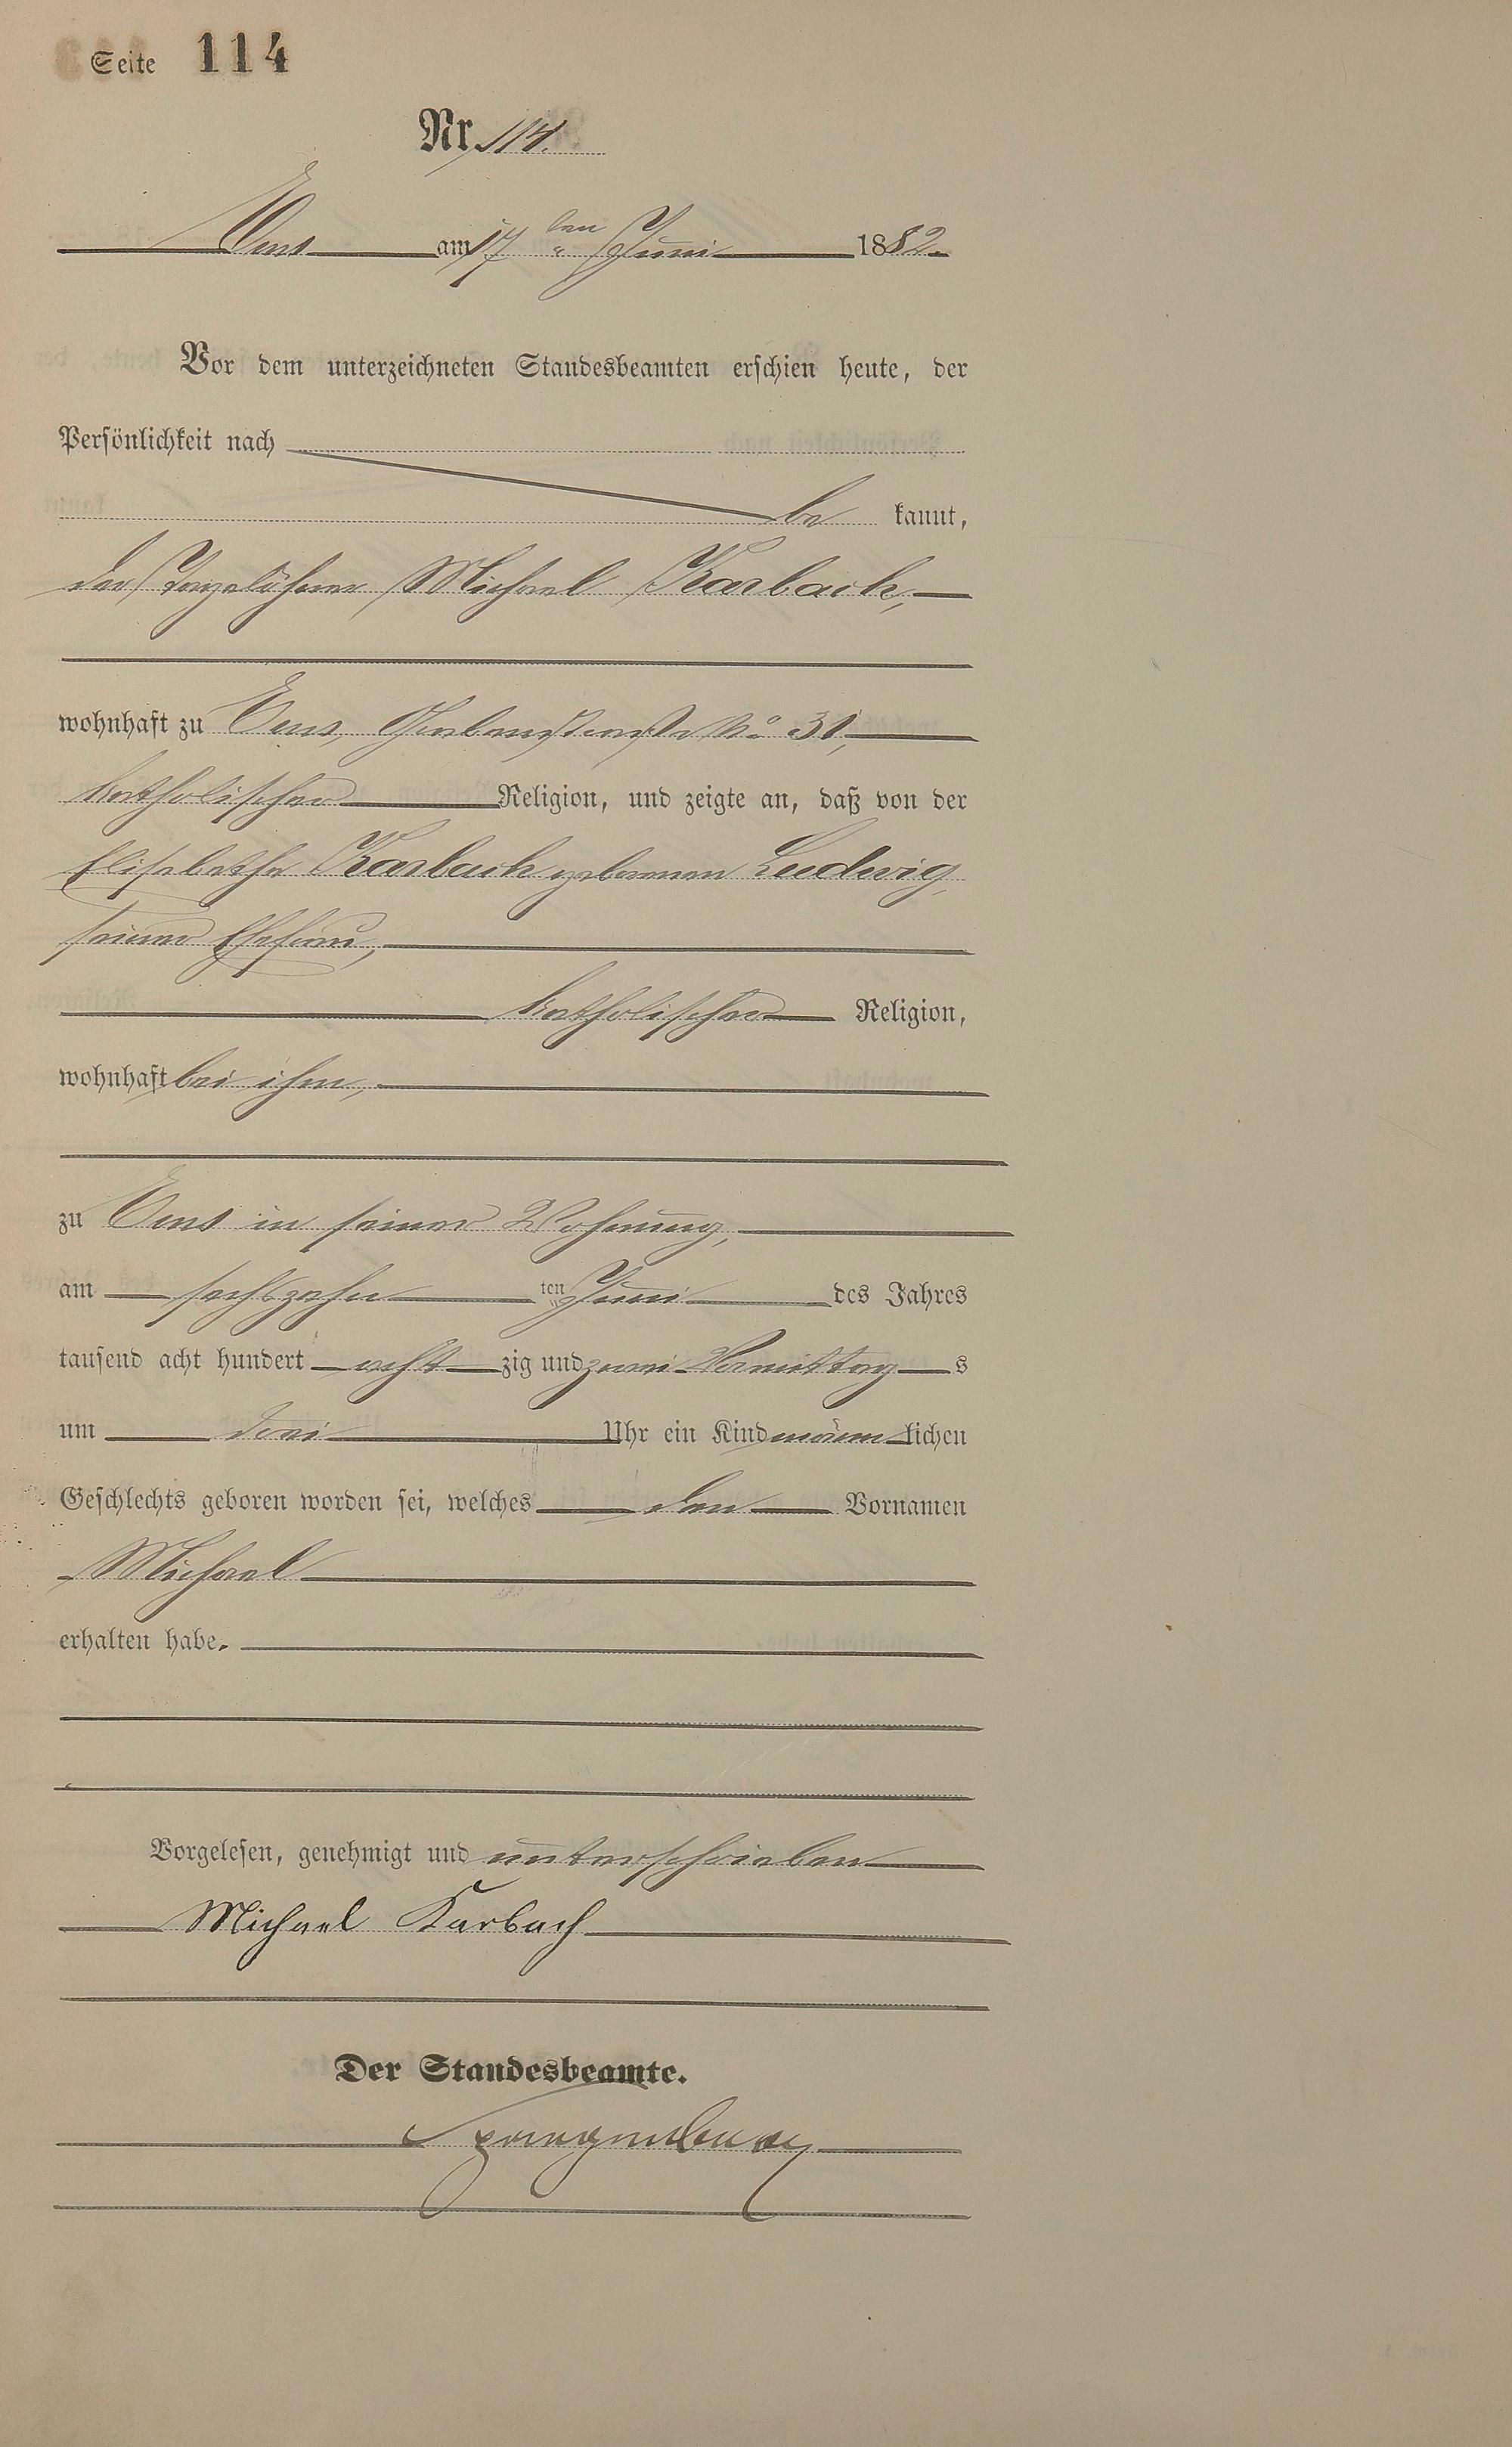 Seite 114
Nr. 114.
Ems am 17ten Juni 1882.
Vor dem unterzeichneten Standesbeamten erschien heute, der
Persönlichkeit nach
be kannt,
der Tagelöhner Michael Karbach,
wohnhaft zu Ems, No 31,
katholischer Religion, und zeigte an, daß von der
Elisabetha Karbach geborenen Ludwig,
seiner Ehefrau,
katholischer Religion,
wohnhaft bei ihm,
zu Ems in seiner Wohnung,
am sechszehn ten Juni des Jahres
tausend acht hundert acht zig und zwei Vormittag s
um drei Uhr ein Kind männ lichen
Geschlechts geboren worden sei, welches den Vornamen
Michael
erhalten habe.
Vorgelesen, genehmigt und unterschrieben
Michael Karbach
Der Standesbeamte.